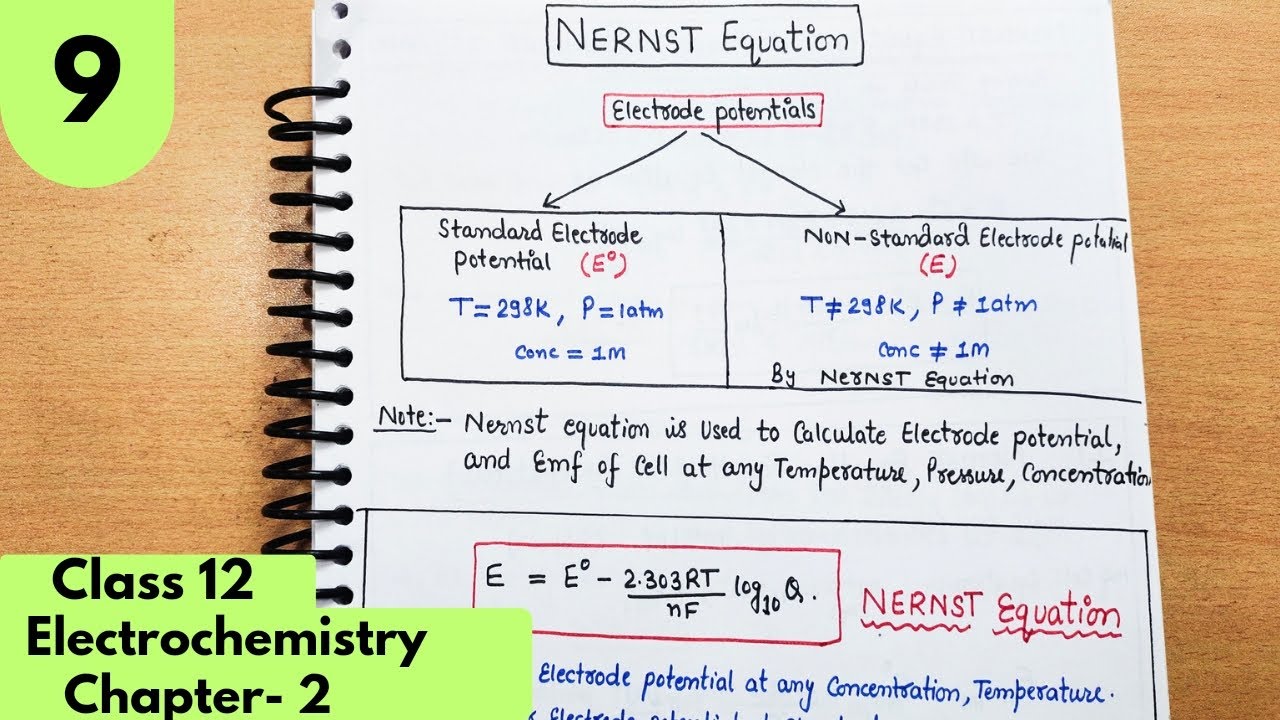 9
NERNST Equation
Electrode potentials
Standard Electrode
potential (E⁰)
T = 298K, P = 1atm
Conc = 1M
NON-Standard Electrode potential
(E)
T ≠ 298K, P ≠ 1atm
Conc ≠ 1M
By NERNST Equation
Note:- Nernst equation is used to Calculate Electrode potential,
and Emf of Cell at any Temperature, Pressure, Concentration
E = E⁰ - 2.303RT/nF log₁₀ Q.
NERNST Equation
Electrode potential at any Concentration, Temperature.
Class 12
Electrochemistry
Chapter- 2